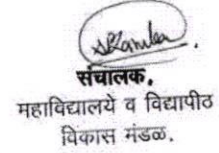 संचालक.
महाविद्यालये व विद्यापीठ
विकास मंडळ.